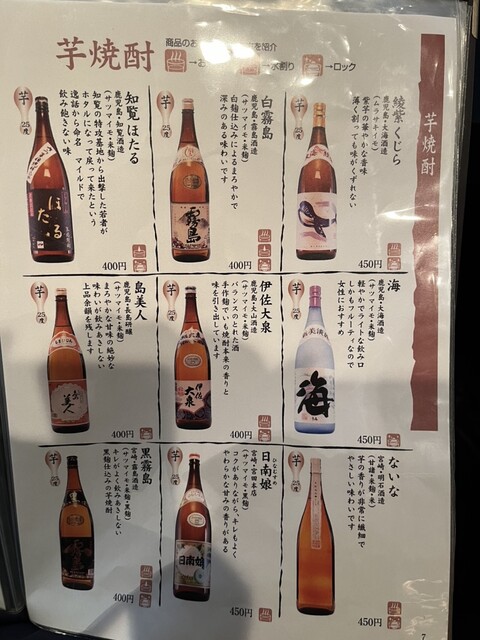 芋焼酎
商品のお
を紹介
→お
→水割り
→ロック
芋焼酎
芋
25度
綾紫くじら
鹿児島・大海酒造
(ムラサキイモ)
紫芋の華やかな香味
薄く割っても味がくずれない
450円
芋
25度
白霧島
宮崎・霧島酒造
(サツマイモ・米麹)
白麹仕込みによるまろやかで
深みのある味わいです
霧島
400円
芋
25度
知覧ほたる
鹿児島・知覧酒造
(サツマイモ・米麹)
知覧の特攻基地から出撃した若者が
ホタルになって戻って来たという
逸話から命名 マイルドで
飲み飽きない味
ほたる
400円
芋
25度
海
鹿児島・大海酒造
(サツマイモ・米麹)
軽やかでライトな飲み口
しかもフルーティなので
女性におすすめ
海
450円
芋
25度
伊佐大泉
鹿児島・大山酒造
(サツマイモ・米麹)
バランスのとれた酒
手作り麹でいも焼酎本来の香りと
味を引き出しています
伊佐大泉
400円
芋
25度
島美人
鹿児島・長島研醸
(サツマイモ・米麹)
まろやかな甘味の絶妙な
味わいが飲みあきしない
上品な余韻を残します
島美人
400円
芋
25度
ないな
宮崎・明石酒造
(甘藷・米麹・米)
芋の香りが非常に繊細で
やさしい味わいです
450円
芋
25度
日南娘
ひなむすめ
宮崎・宮田本店
(サツマイモ・米・黒麹)
コクがありながら、キレもよく
やわらかな甘みの香りがある
日南娘
450円
芋
25度
黒霧島
宮崎・霧島酒造
(サツマイモ・米麹)
キレがよく飲みあきしない
黒麹仕込みの芋焼酎
400円
7